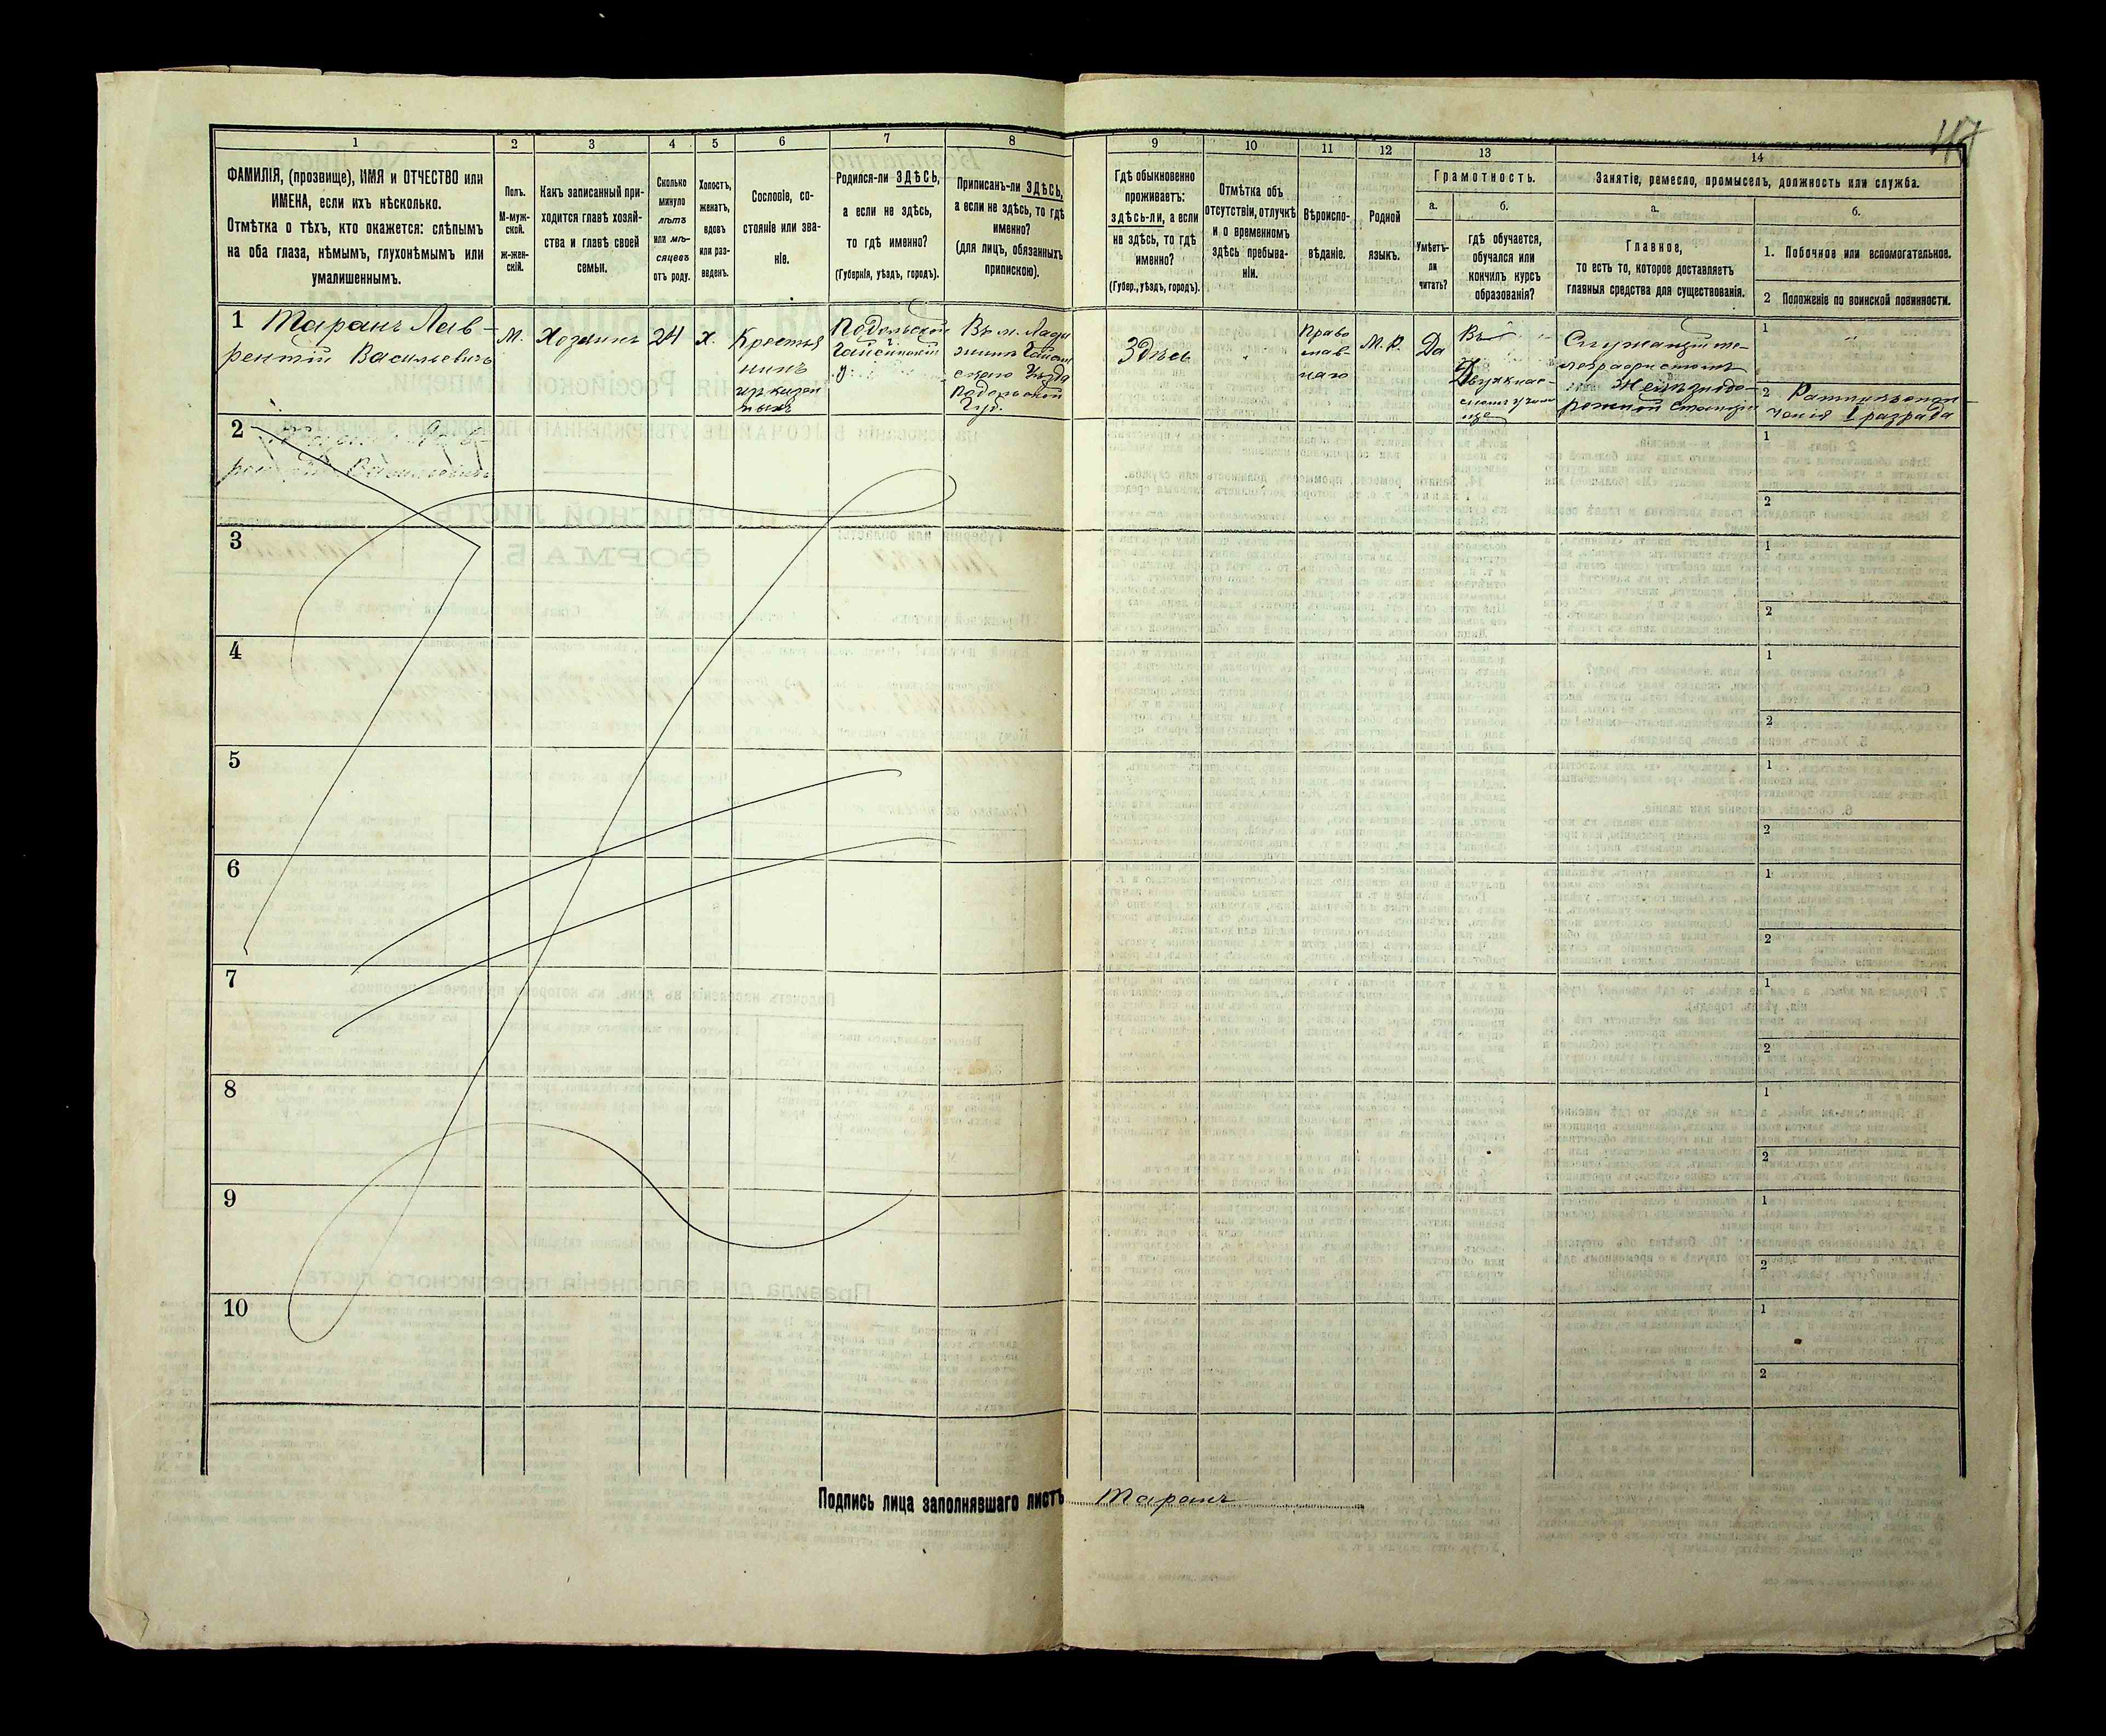 117
1
ФАМИЛІЯ, (прозвище), ИМЯ и ОТЧЕСТВО или
ИМЕНА, если ихъ нѣсколько.
Отмѣтка о тѣхъ, кто окажется: слѣпымъ
на оба глаза, нѣмымъ, глухонѣмымъ или
умалишеннымъ.
2
Полъ.
М-муж-
ской.
ж-жен-
скій.
3
Какъ записанный при-
ходится главѣ хозяй-
ства и главѣ своей
семьи.
4
Сколько
минуло
лѣтъ
или мѣ-
сяцевъ
отъ роду.
5
Холостъ,
женатъ,
вдовъ
или раз-
веденъ.
6
Сословіе, со-
стояніе или зва-
ніе.
7
Родился-ли ЗДѢСЬ,
а если не здѣсь,
то гдѣ именно?
(Губернія, уѣздъ, городъ).
8
Приписанъ-ли ЗДѢСЬ,
а если не здѣсь, то гдѣ
именно?
(для лицъ, обязанныхъ
припискою).
9
Гдѣ обыкновенно
проживаетъ:
здѣсь-ли, а если
не здѣсь, то гдѣ
именно?
(Губер., уѣздъ, городъ).
10
Отмѣтка объ
отсутствіи, отлучкѣ
и о временномъ
здѣсь пребыва-
ніи.
11
Вѣроиспо-
вѣданіе.
12
Родной
языкъ.
13
Грамотность.
а.
Умѣетъ-
ли
читать?
б.
гдѣ обучается,
обучался или
кончилъ курсъ
образованія?
14
Занятіе, ремесло, промыселъ, должность или служба.
а.
Главное,
то есть то, которое доставляетъ
главныя средства для существованія.
б.
1. Побочное или вспомогательное.
2 Положеніе по воинской повинности.
1 Таранъ Лав-
рентій Васильевичъ
М.
Хозяинъ
24
х.
Крестья
нинъ
Подольской
Гайсинскій
у.
Въ м. Лады
жинѣ Гайсин
скаго Уѣзда
Подольской
Губ.
Здѣсь
Право
слав-
наго
М. Р.
Да
Въ
Двуклас-
Служащій те-
леграфистомъ
Желѣзнодо-
рожной Станціи
1
2 Ратникъ ополченія
I разряда
2
рентій Васильевичъ
1
2
3
1
2
4
1
2
5
1
2
6
1
2
7
1
2
8
1
2
9
1
2
10
1
2
Подпись лица заполнявшаго листъ Таранъ